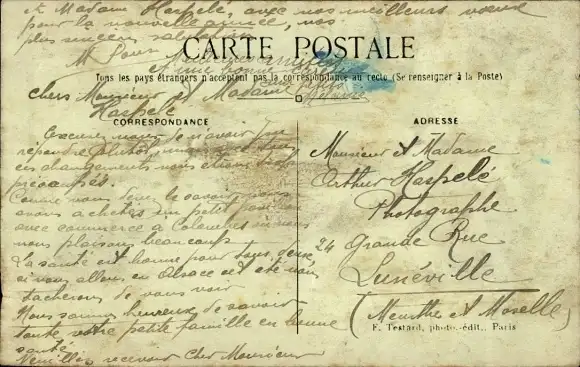 et Madame Haspelé, avec nos meilleurs voeux
pour la nouvelle année, nos
plus sincères salutations
CARTE POSTALE
Tous les pays étrangers n'acceptent pas la correspondance au recto (Se renseigner à la Poste)
chers Monsieur et Madame
Haspelé
CORRESPONDANCE
Excusez nous de n'avoir pu
répondre plutôt, mais avec tous
ces changements nous étions
préoccupés.
Comme vous devez le savoir, nous
avons achetés un petit
avec commerce à Colombes où nous
nous plaisons beaucoup
La santé est bonne pour tous deux,
si nous allons en Alsace cet été nous
tacherons de vous voir
Nous sommes heureux de savoir
toute votre petite famille en bonne
santé.
Veuillez recevoir cher Monsieur
ADRESSE
Monsieur et Madame
Arthur Haspelé
Photographe
24 Grande Rue
Lunéville
(Meurthe et Moselle)
F. Testard, photo.-édit., Paris